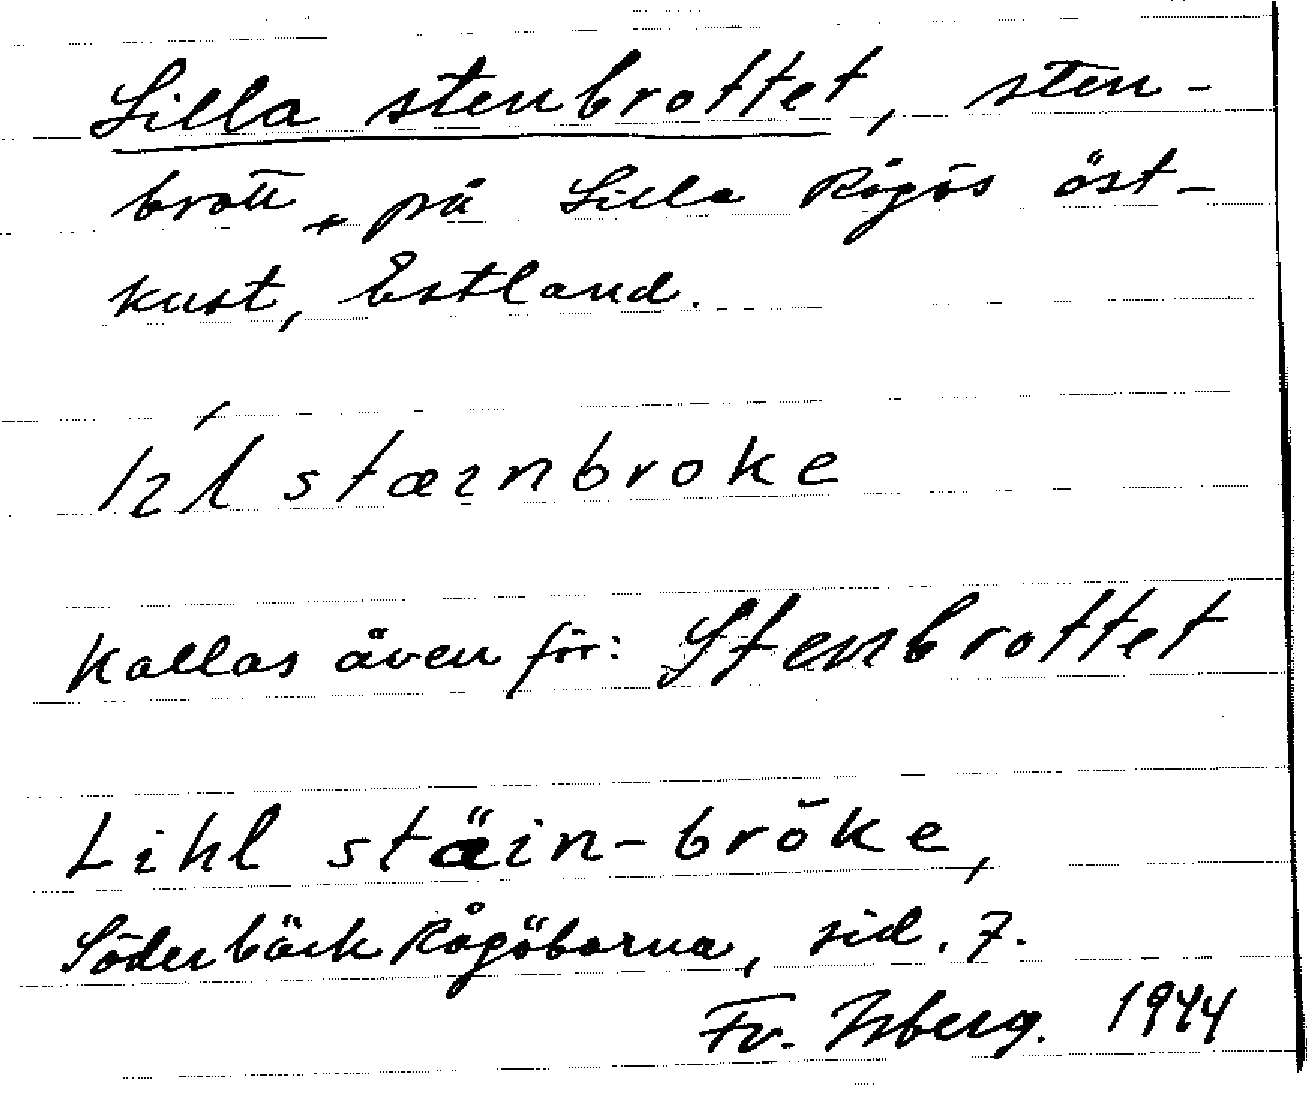 Lilla stenbrottet, sten-
brott, på Lilla Rågös öst-
kust, Estland.
stæınbroke
Kallas även för: Stenbrottet
Lihl stäin-brŏke,
Söderbäck Rågöborna, sid. 7.
Fr. Isberg. 1944